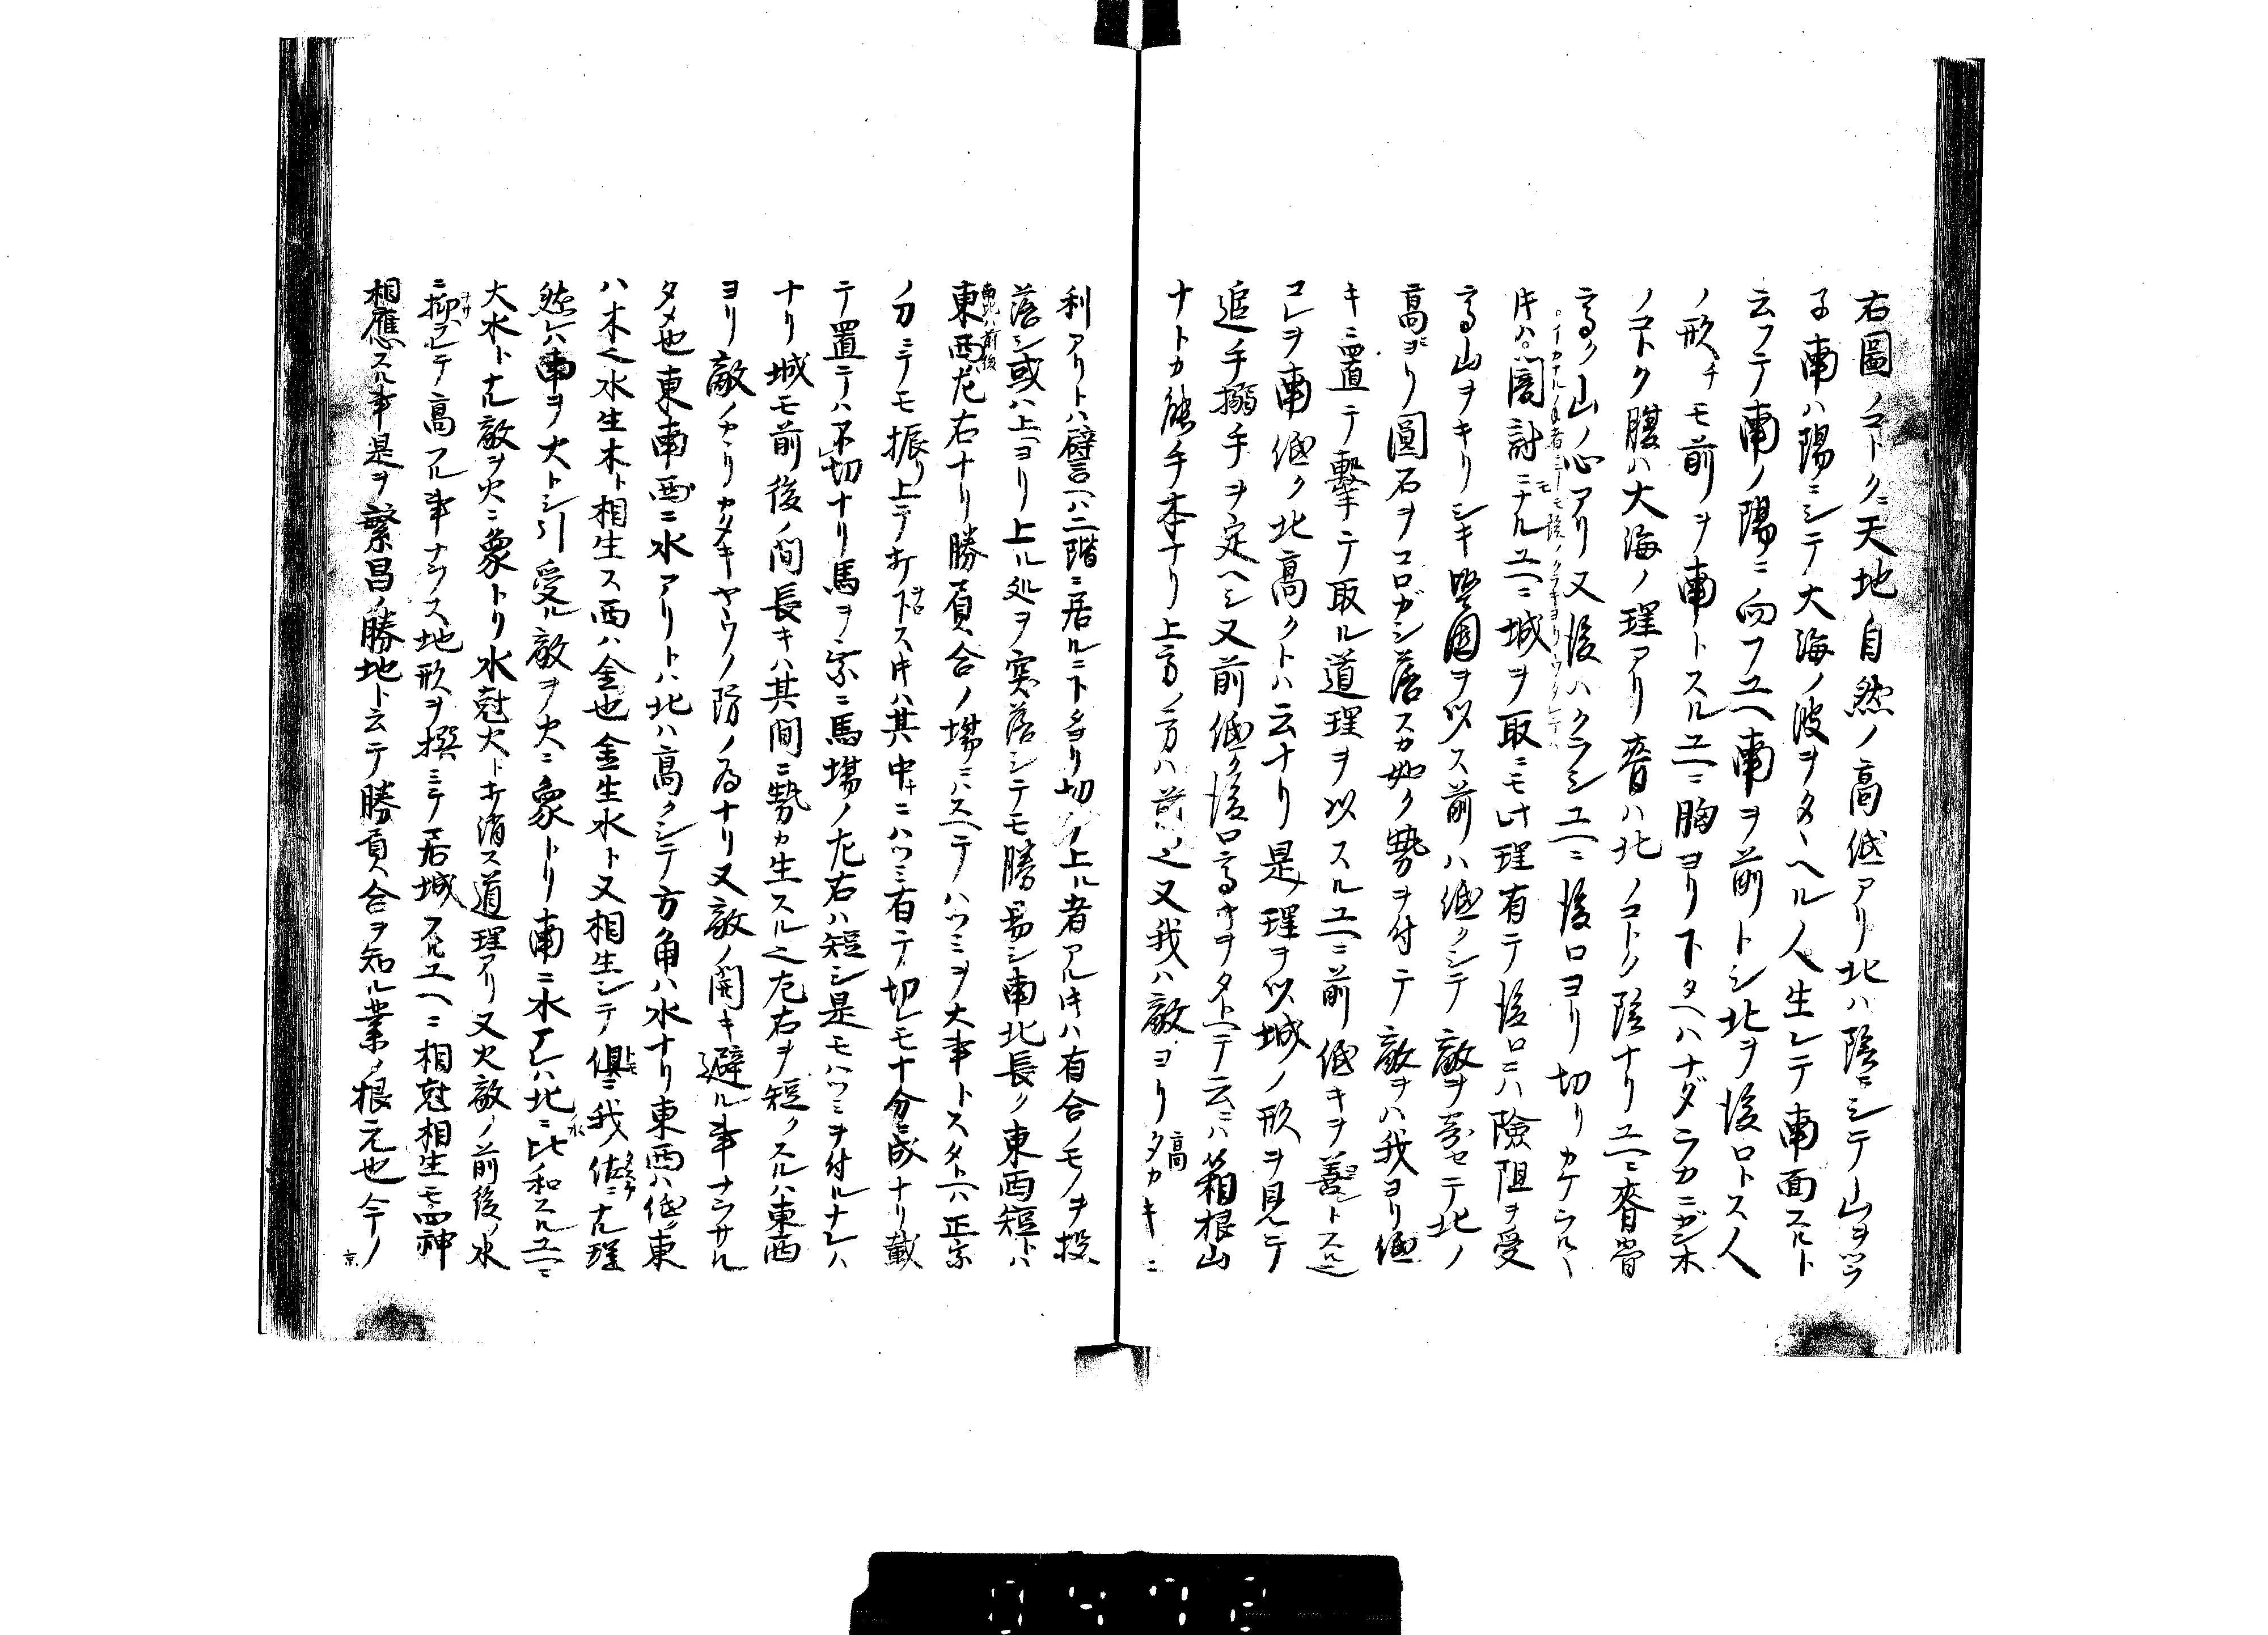 右圖ノコトクニ天地自然ノ高低アリ北ハ陰ニシテ山ヲツラ
子南ハ陽ニシテ大海ノ波ヲタヽヘル人生レテ南面スルト
云フテ南ノ陽ニ向フユヘ南ヲ前トシ北ヲ後ロトス人
ノ形チモ前ヲ南トスルユヘニ胸ヨリ下タヘハナダラカニシ
ノコトク腹ハ大海ノ理アリ脊ハ北ノコトク陰ナリユヘニ脊骨
高ク山ノ心アリ又後ハクラシユヘニ後ロヨリ切リカケラルヽ
寸ハ闇討ニナルユヘニ城ヲ取ニモ此理有テ後ロニハ險阻ヲ受
高山ヲキリシキ堅固ヲ以ス前ハ低クシテ敵ヲ寄セテ北ノ
高ヨリ圓石ヲコロガシ落スカ如ク勢ヲ付テ敵ヲハ我ヨリ低
キニ置テ撃テ取ル道理ヲ以スルユヘニ前低キヲ善トスル也
コレヲ南低ク北高クトハ云ナリ是ノ理ヲ以城ノ形ヲ見テ
追手搦手ヲ定ヘシ又前低ク後ロ高キヲタトヘテ云ニハ箱根山
ナトカ能手本ナリ上方ノ方ハ前ノ之又我ハ敵ヨリタカキニ
高
利アリトハ譬言ヘハ二階ニ居ルニ下タヨリ切ノ上ル者アル寸ハ有合ノモノヲ投
落シ或ハ上ヨリ上ル処ヲ突落シテモ勝易シ南北長ク東西短トハ
南北ハ前後
東西ハ左右ナリ勝負合ノ場ニハスヘテハツミヲ大事トスタトヘハ正宗
ノ刀ニテモ振リ上テ打下ス寸ハ其中ニハツミ有テ切レモ十分ニ成ナリ載
テ置テハ不切ナリ馬ヲ乘ニ馬場ノ左右ハ短シ是モハツミヲ付ルナレハ
ナリ城モ前後ノ間長キハ其間ニ勢カ生スル之左右ヲ短クスルハ東西
ヨリ敵ノカヽリカタキヤウノ防ノ為ナリ又敵ノ開キ避ル事ナラサル
タメ也東南西ニ水アリトハ北ハ高クシテ方角ハ水ナリ東西ハ低ク東
ハ木之水生木ト相生ス西ハ金也金生水ト又相生シテ俱ニ我ノ佐ニナル理
然レハ南ヲ大トシ引受ル敵ヲ火ニ象トリ南ニ水アレハ北ニ比和スルユヘニ
水
大水トナル敵ヲ火ニ象トリ水尅火ト打消ス道理アリ又火敵ノ前後ノ水
ニ抑ヘラレテ高フル事ナラス地形ヲ撰ミテ居城スルユヘニ相尅相生モ四神
相應スル事是ヲ繁昌ノ勝地ト云テ勝負合ヲ知ル業ノ根元也今ノ
京